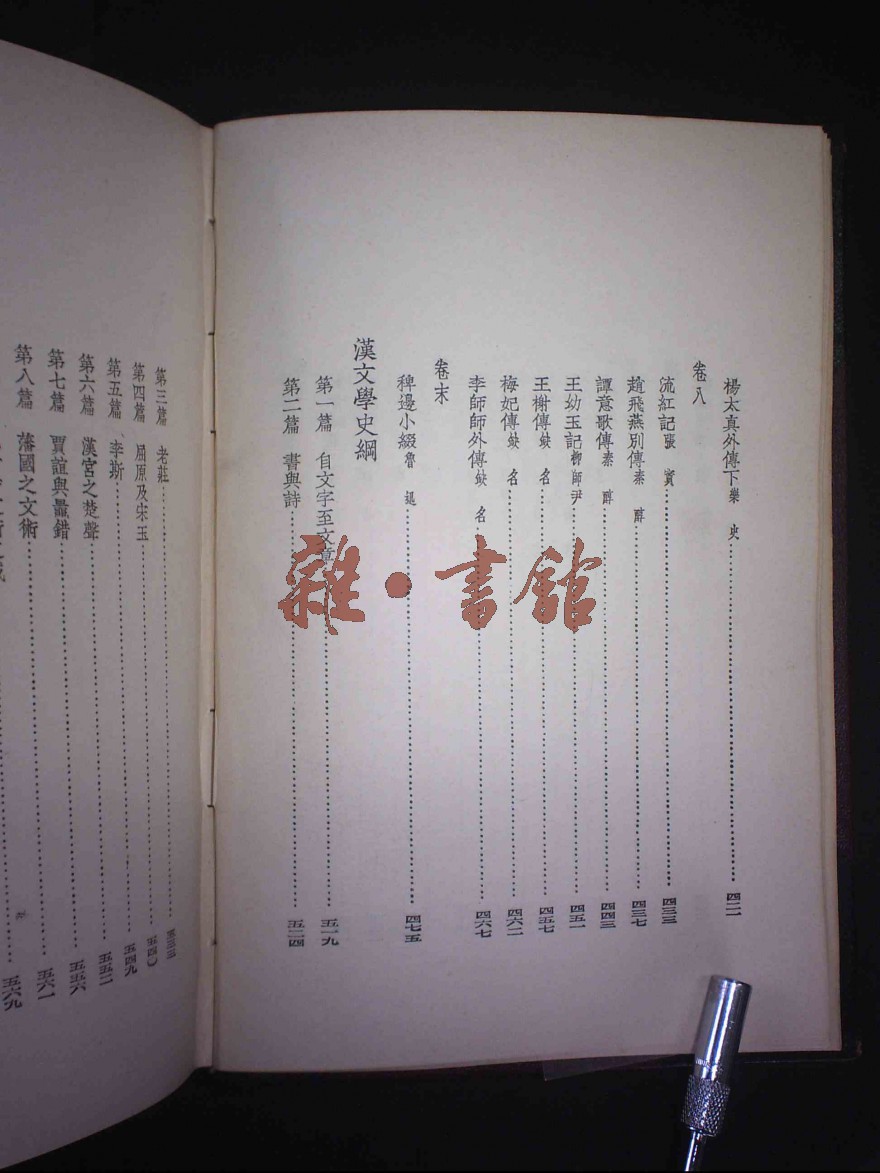 楊太真外傳下 樂史 四二一
卷八
流紅記 張實 四三三
趙飛燕別傳 秦醇 四三七
譚意歌傳 秦醇 四四三
王幼玉記 柳師尹 四五一
王榭傳 缺名 四五七
梅妃傳 缺名 四六二
李師師外傳 缺名 四六七
卷末
稗邊小綴 魯迅 四七五
漢文學史綱
第一篇 自文字至文章 五一九
第二篇 書與詩 五二四
第三篇 老莊
第四篇 屈原及宋玉 五四〇
第五篇 李斯 五四九
第六篇 漢宮之楚聲 五五二
第七篇 賈誼與鼂錯 五五六
第八篇 藩國之文術 五六一
五六九
雜·書館